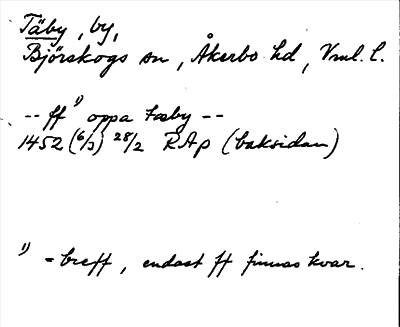 Täby, by,
Björskogs sn, Åkerbo hd, Vml. l.
-- ff ¹) oppa tæby --
1452 (6/3) 28/2 RAp (baksidan)
¹) = breff, endast ff finnas kvar.